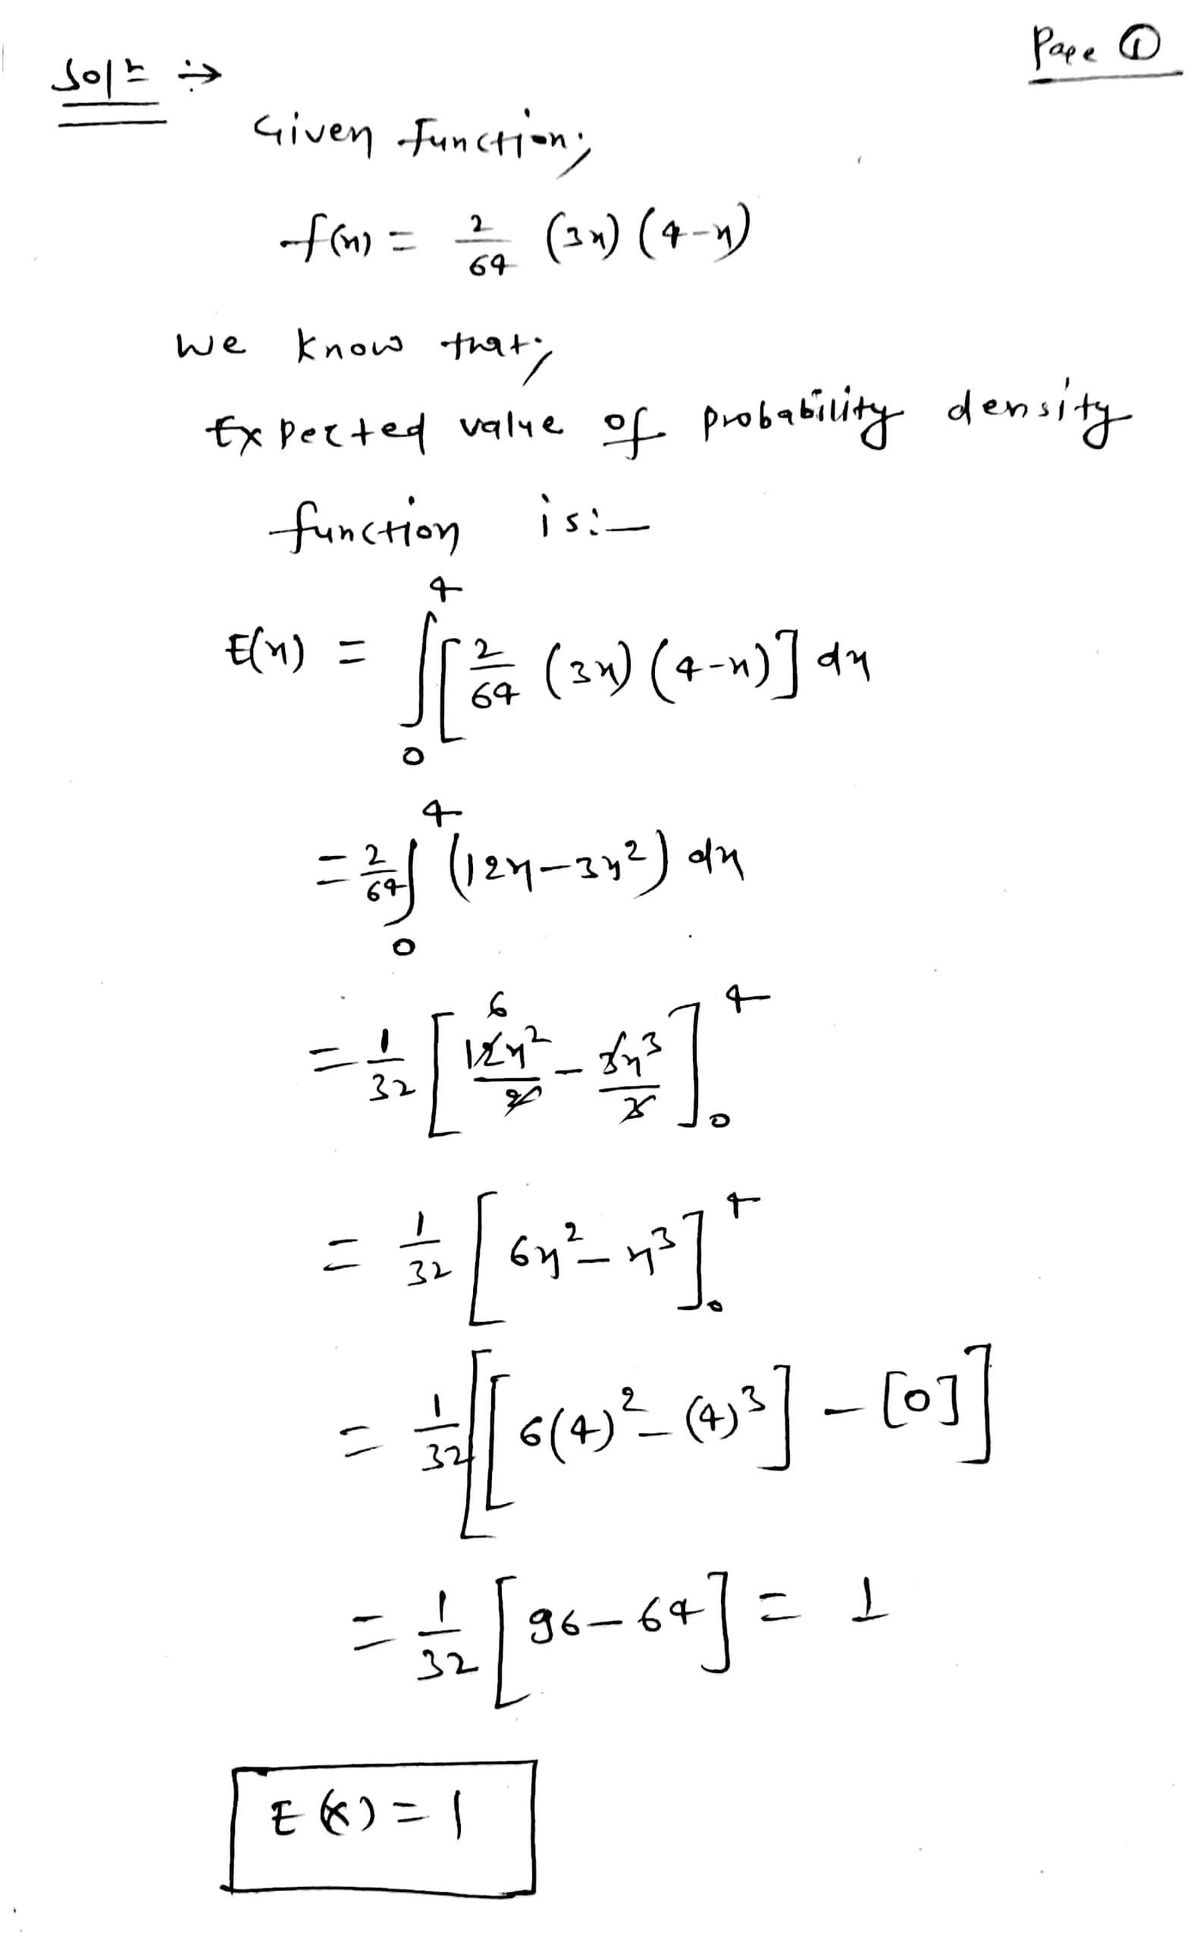 Page ①
Solⁿ ÷>
Given Function;
f(x) = 2/64 (3x) (4-x)
We know that;
Expected value of probability density
function is:-
E(x) = ∫₀⁴ [2/64 (3x) (4-x)] dx
= 2/64 ∫₀⁴ (12x-3x²) dx
= 1/32 [12x²/2 - 3x³/3]₀⁴ 6
= 1/32 [6x² - x³]₀⁴
= 1/32 [[6(4)² - (4)³] - [0]]
= 1/32 [96-64] = 1
E(x) = 1